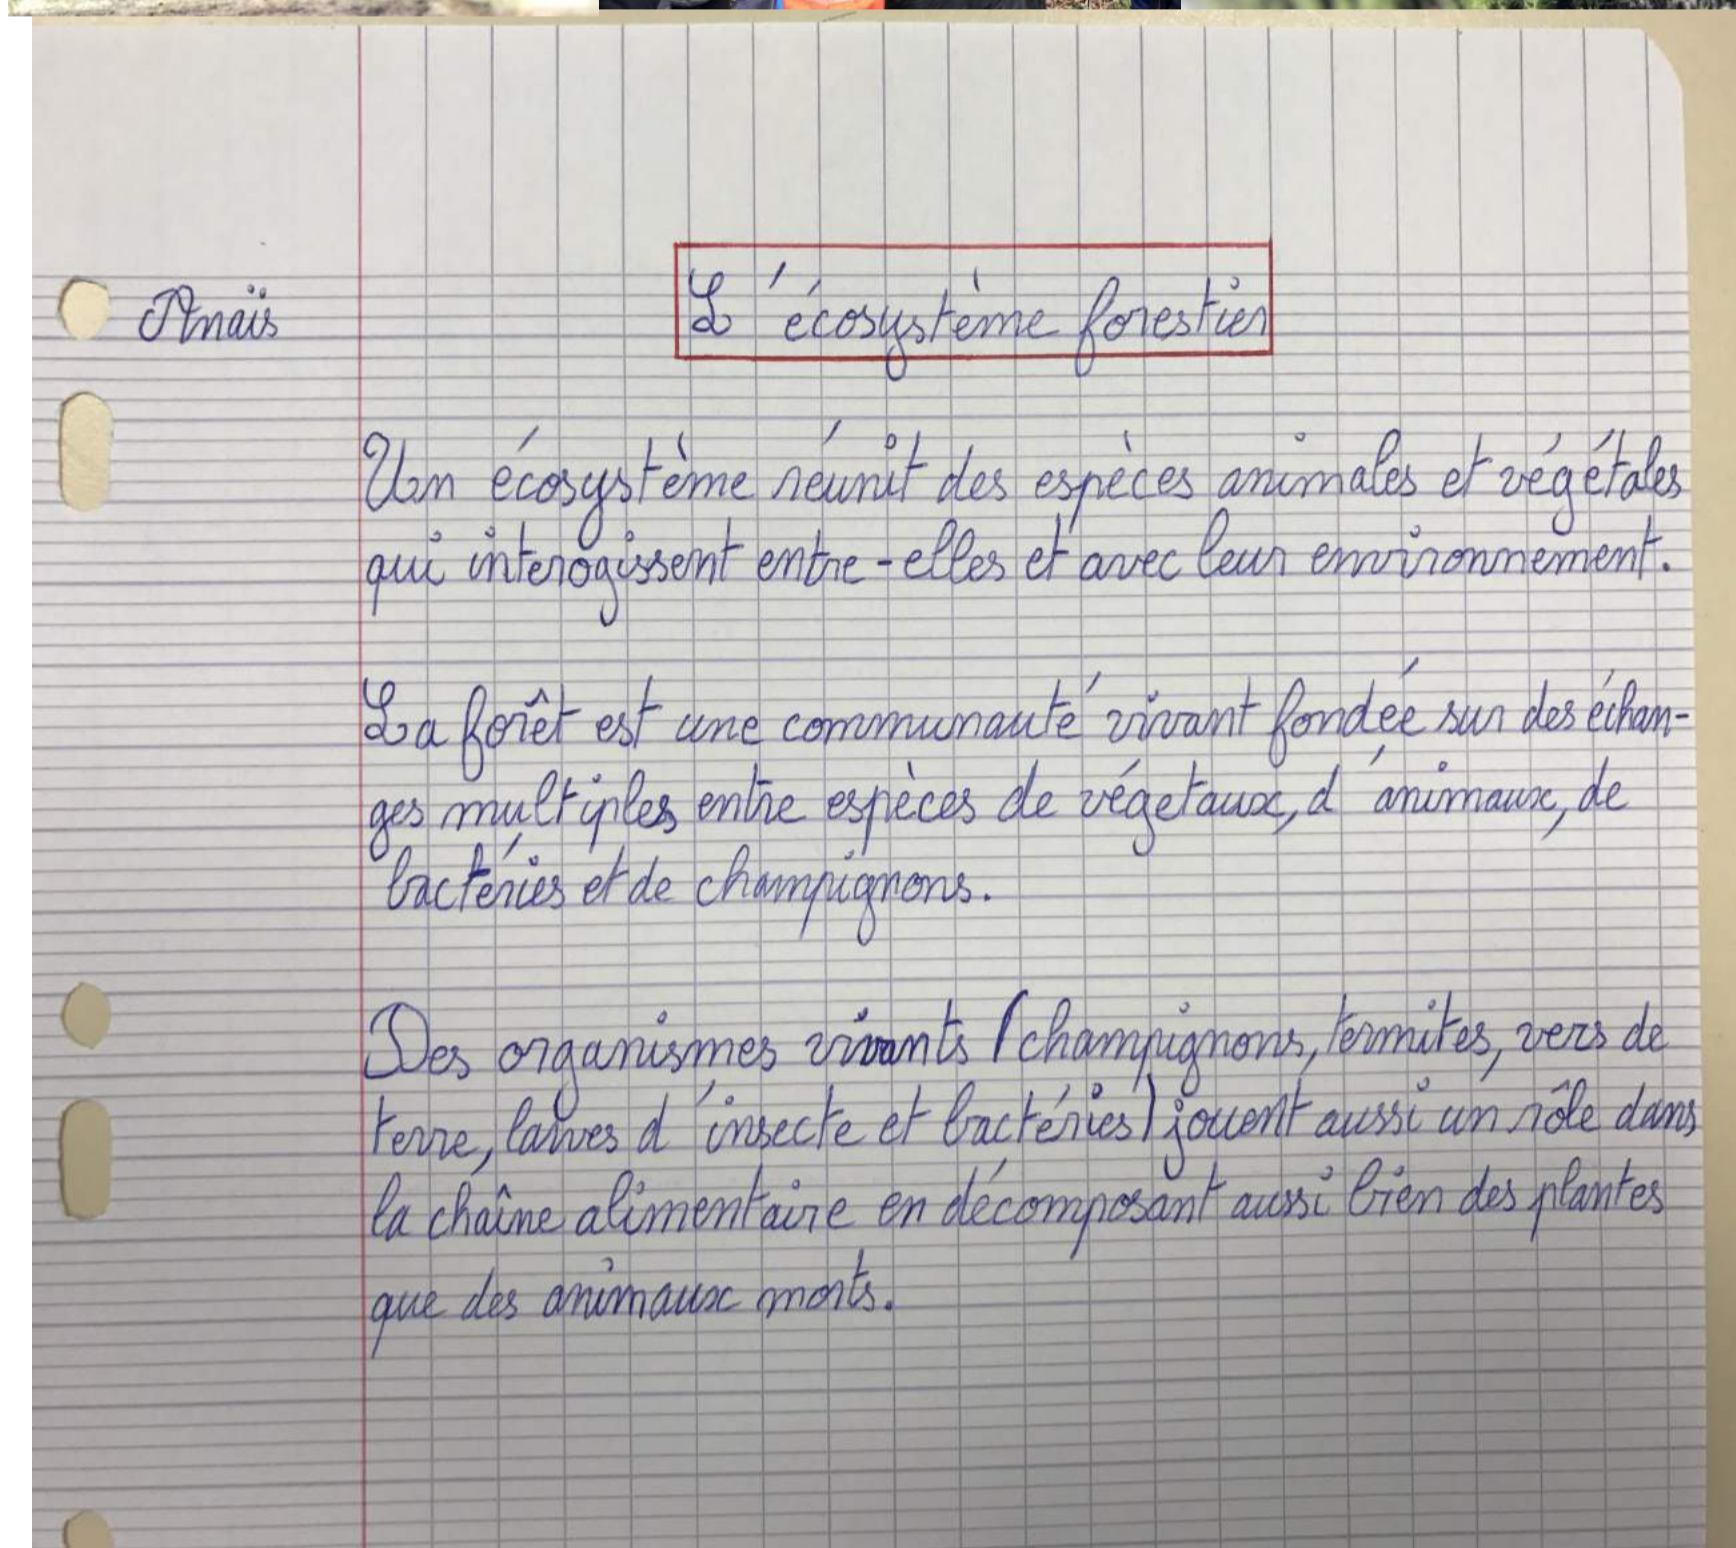 Anaïs
L'écosystème forestier
Un écosystème réunit des espèces animales et végétales
qui interagissent entre-elles et avec leur environnement.
La forêt est une communauté vivant fondée sur des échan-
ges multiples entre espèces de végetaux, d'animaux, de
bactéries et de champignons.
Des organismes vivants (champignons, termites, vers de
terre, larves d'insecte et bactéries) jouent aussi un rôle dans
la chaîne alimentaire en décomposant aussi bien des plantes
que des animaux morts.